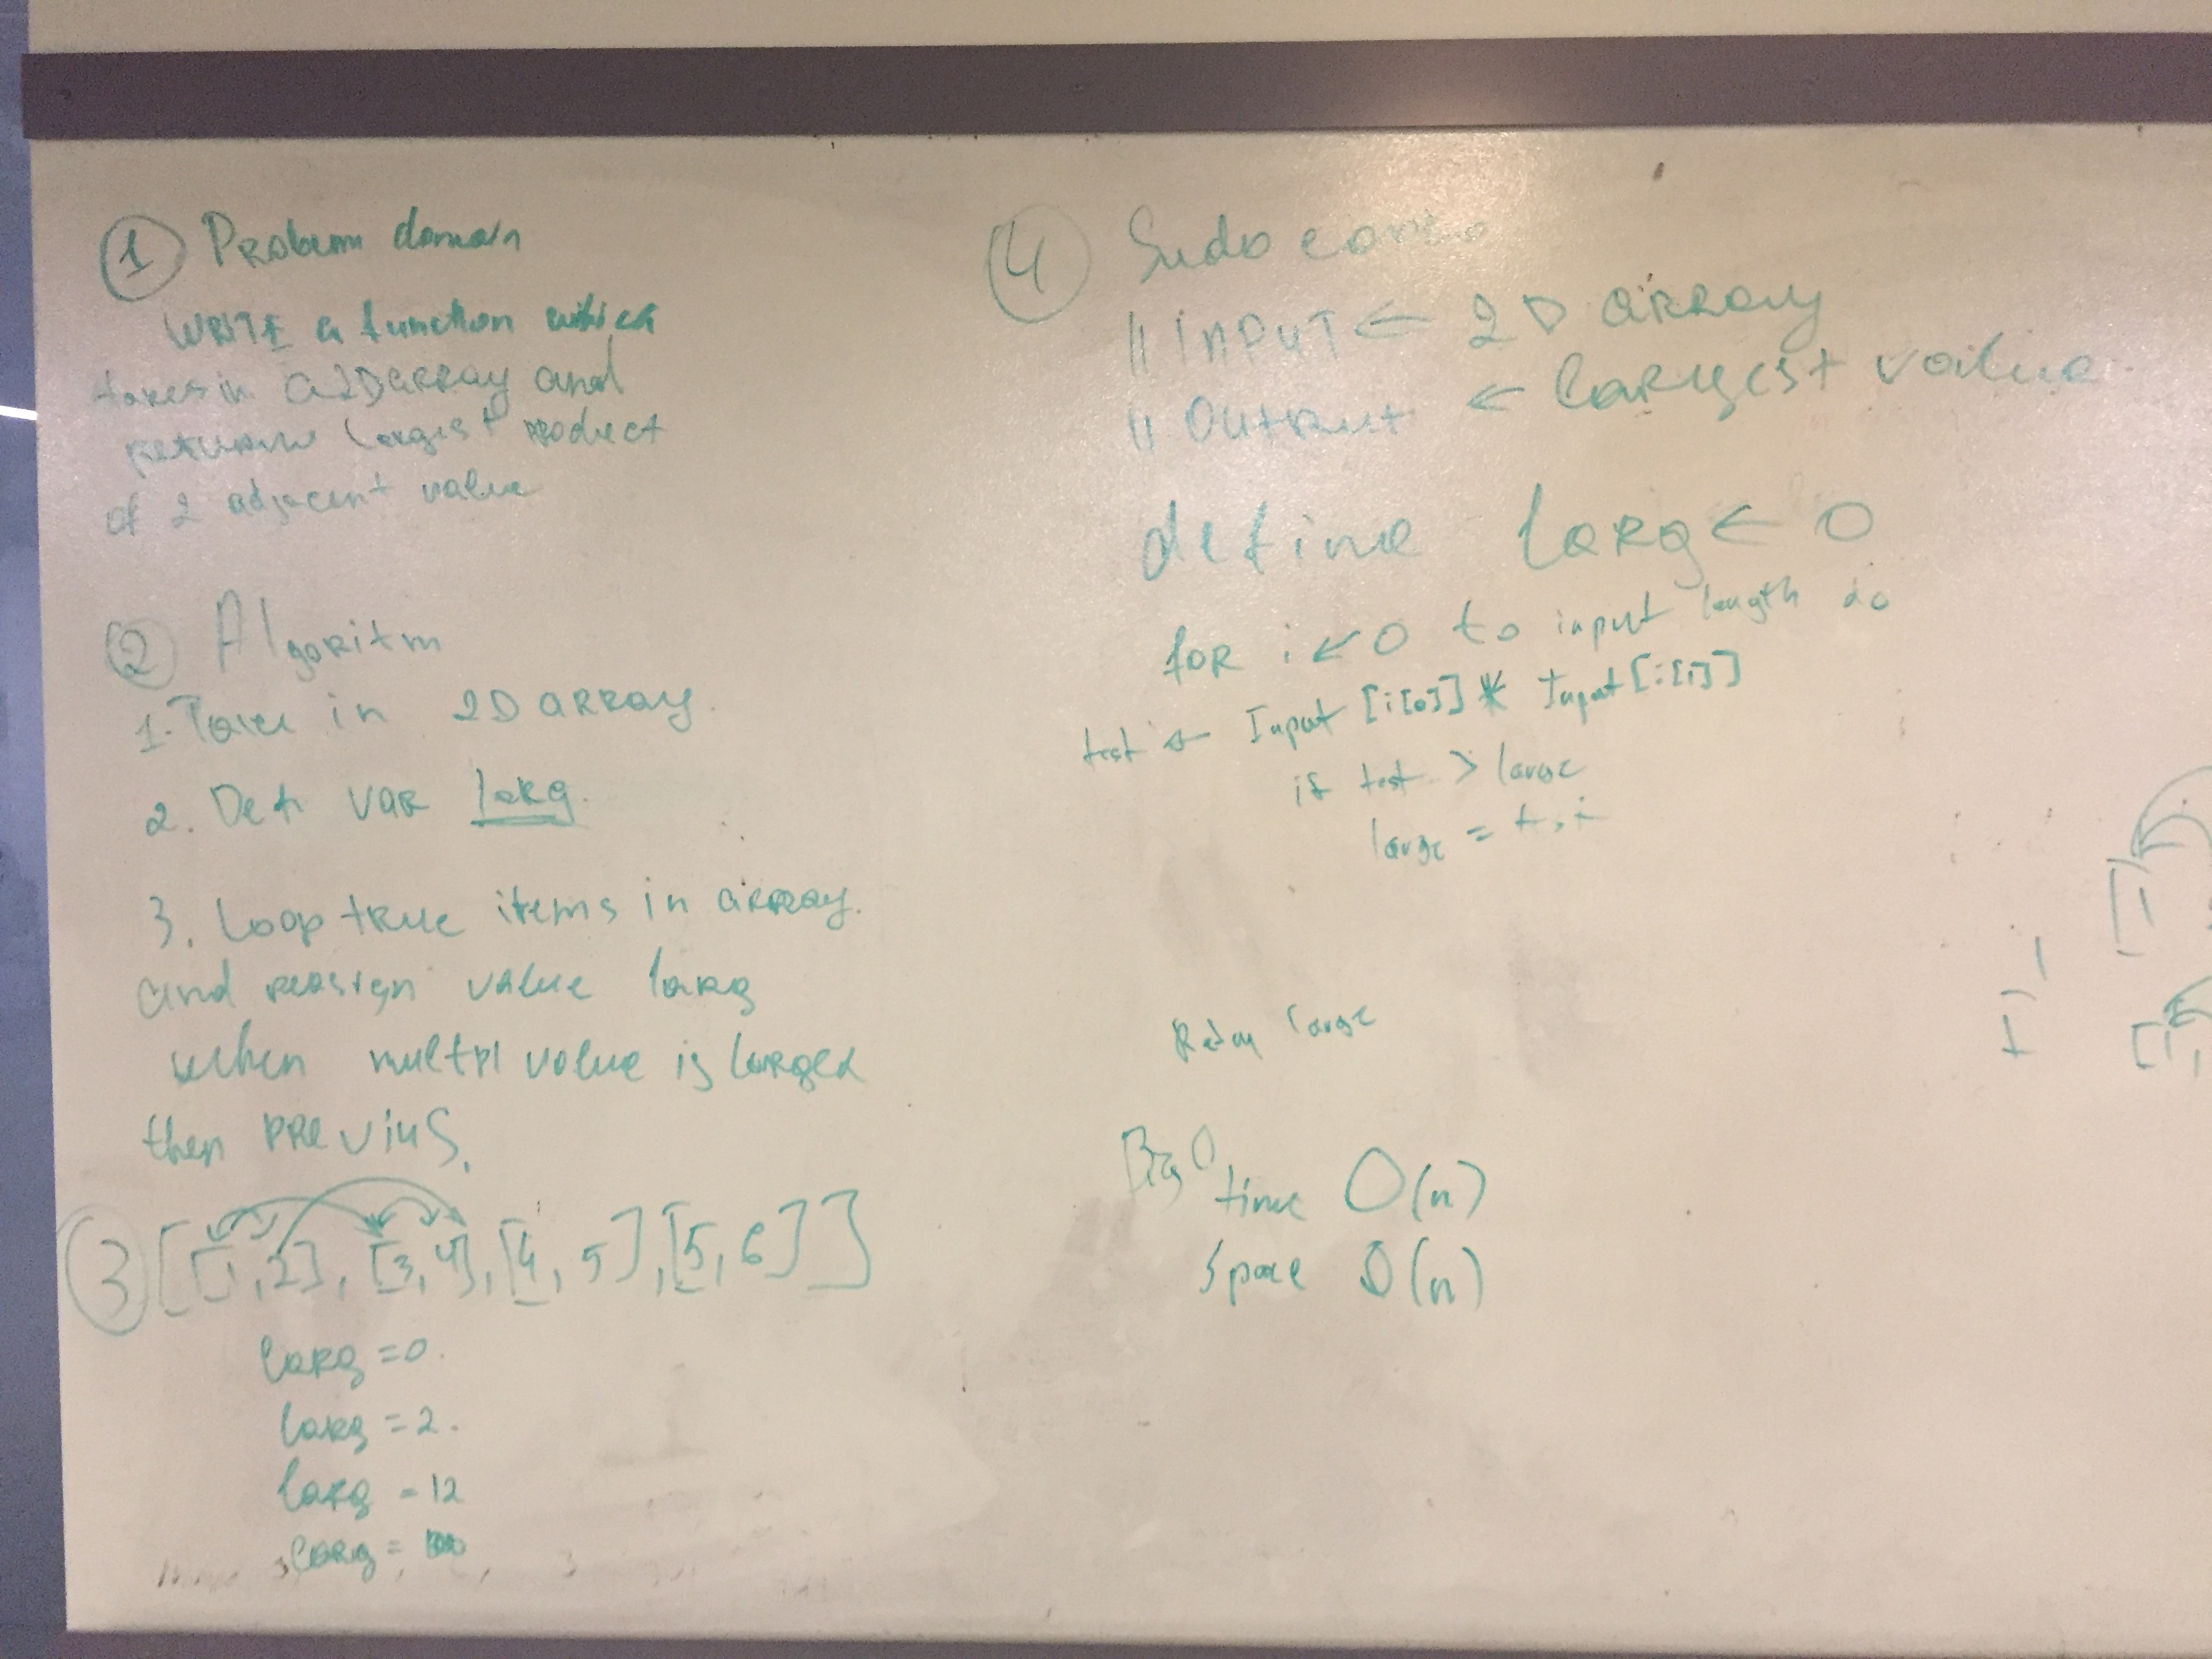 ① Problem domain
WRITE a function which
takes in a 2D array and
returns largest product
of 2 adjacent value
② Algoritm
1. Take in 2D array.
2. Def VAR larg.
3. Loop true items in array.
and reasign value larg
when multpl value is larger
then previus.
③ [[1, 2], [3, 4], [4, 5], [5, 6]]
larg = 0.
larg = 2.
larg = 12
larg =
④ Sudo
// INPUT ← 2D array
// Output ← largest value
define larg ← 0
for i ← 0 to input length do
test ← Input [i[0]] * Input [i[1]]
if test > large
large =
large
Big O
time O(n)
space O(n)
[1
1
[1,